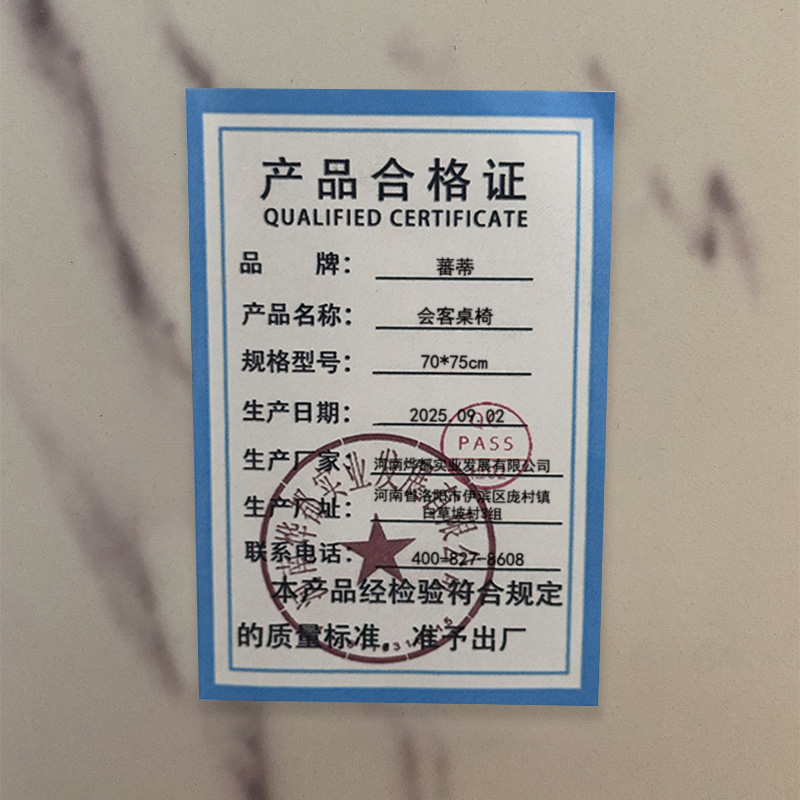 产品合格证
QUALIFIED CERTIFICATE
品 牌： 蕃蒂
产品名称： 会客桌椅
规格型号： 70*75cm
生产日期： 2025.09.02
PASS
生产厂家： 河南烨都实业发展有限公司
生产厂址： 河南省洛阳市伊滨区庞村镇
白草坡村3组
联系电话： 400-827-8608
河南烨都实业发展有限公司
本产品经检验符合规定
的质量标准，准予出厂